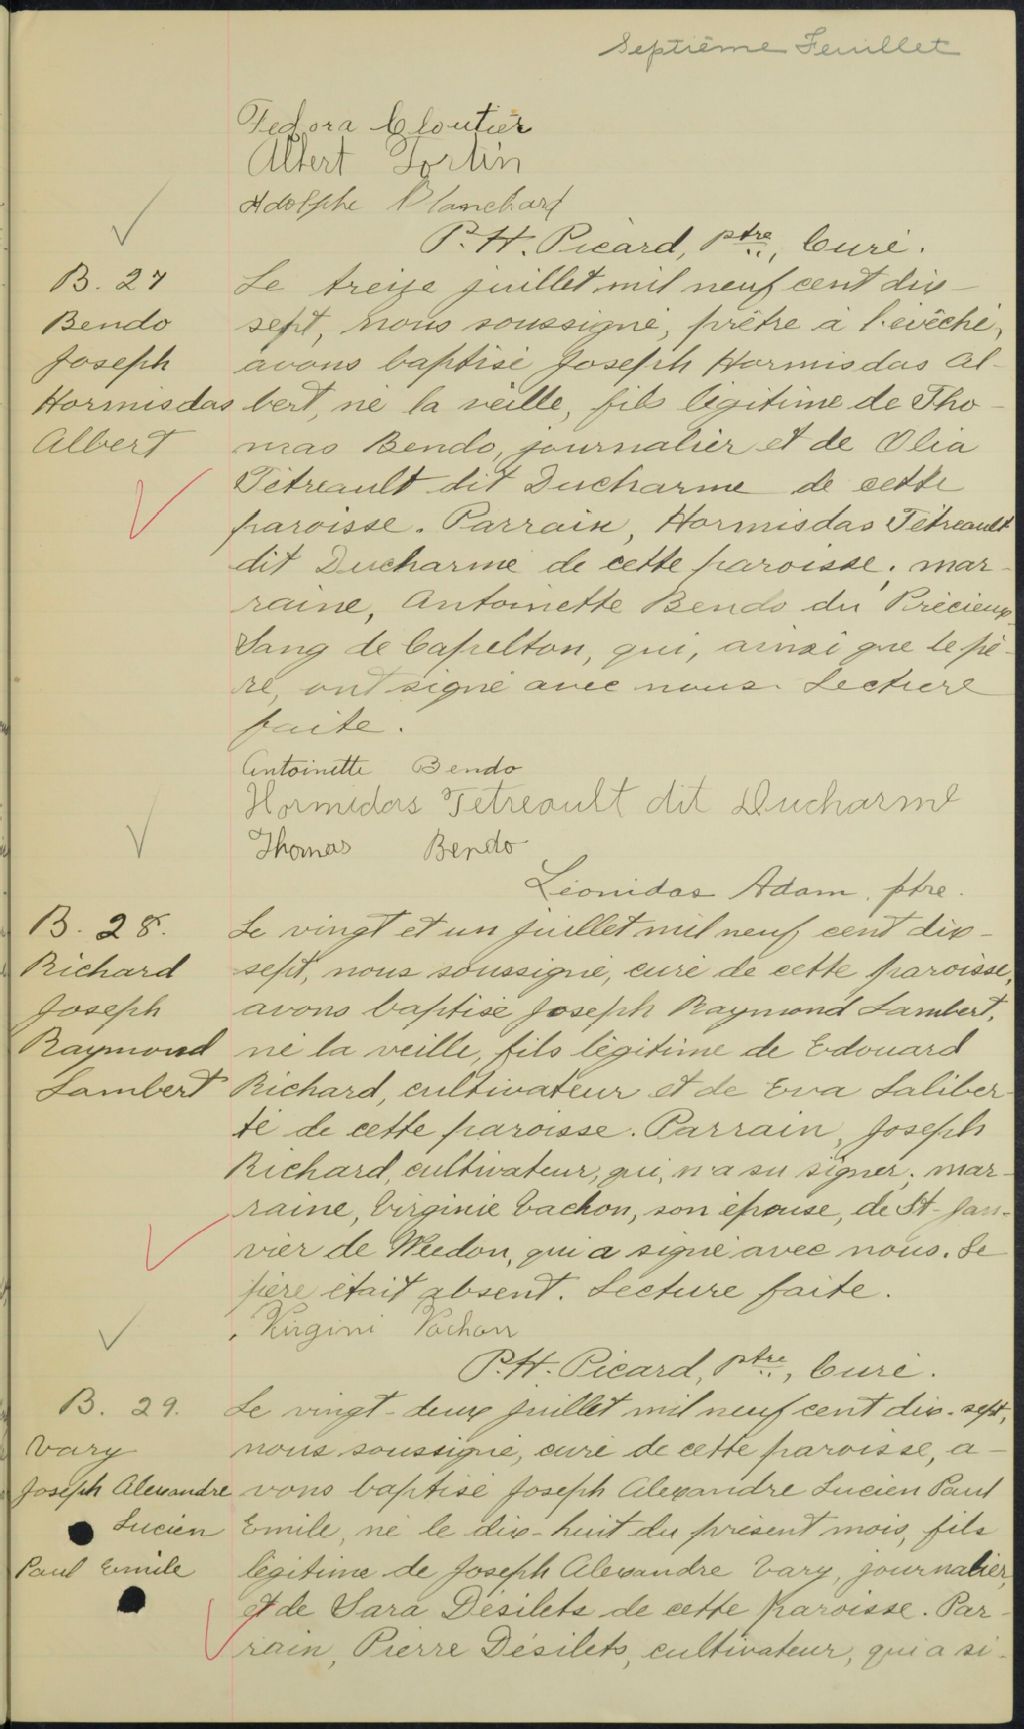 Septième Feuillet
Fedora Cloutier
Albert Fortin
Adolphe Blanchard
P.-H. Picard, ptre, Curé.
B. 27
Bendo
Joseph
Hormisdas
Albert
Le treize juillet mil neuf cent dix-
sept, nous soussigné, prêtre à l'évêché,
avons baptisé Joseph Hormisdas Al-
bert, né la veille, fils légitime de Tho-
mas Bendo, journalier et de Olia
Tétreault dit Ducharme de cette
paroisse. Parrain, Hormisdas Tétreault
dit Ducharme de cette paroisse; mar-
raine, Antoinette Bendo du Précieux-
Sang de Capelton, qui, ainsi que le pè-
re, ont signé avec nous. Lecture
faite.
Antoinette Bendo
Hormidas Tetreault dit Ducharme
Thomas Bendo
Léonidas Adam, ptre.
B. 28.
Richard
Joseph
Raymond
Lambert
Le vingt et un juillet mil neuf cent dix-
sept, nous soussigné, curé de cette paroisse,
avons baptisé Joseph Raymond Lambert,
né la veille, fils légitime de Edouard
Richard, cultivateur et de Eva Laliber-
té de cette paroisse. Parrain, Joseph
Richard, cultivateur, qui, n'a su signer; mar-
raine, Virginie Vachon, son épouse, de St-Jan-
vier de Weedon, qui a signé avec nous. Le
père était absent. Lecture faite.
Virgini Vachon
P.-H. Picard, ptre, Curé.
B. 29.
Vary
Joseph Alexandre
Lucien
Paul Emile
Le vingt-deux juillet mil neuf cent dix-sept,
nous soussigné, curé de cette paroisse, a-
vons baptisé Joseph Alexandre Lucien Paul
Emile, né le dix-huit du présent mois, fils
légitime de Joseph Alexandre Vary, journalier,
et de Sara Désilets de cette paroisse. Par-
rain, Pierre Désilets, cultivateur, qui a si-